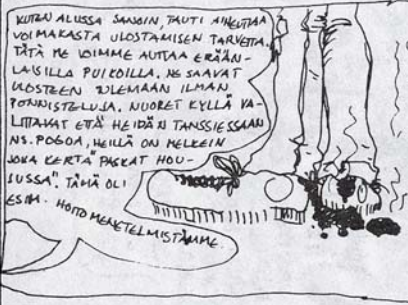 KUTEN ALUSSA SANOIN, TAUTI AIHEUTTAA
VOIMAKASTA ULOSTAMISEN TARVETTA.
TÄTÄ ME VOIMME AUTTAA ERÄÄN-
LAISILLA PUIKOILLA. NE SAAVAT
ULOSTEEN TULEMAAN ILMAN
PONNISTELUJA. NUORET KYLLÄ VA-
LITTAVAT ETTÄ HEIDÄN TANSSIESSAAN
NS. POGOA, HEILLÄ ON MELKEIN
JOKA KERTA "PASKAT HOU-
SUSSA". TÄMÄ OLI
ESIM. HOITOMENETELMISTÄMME.